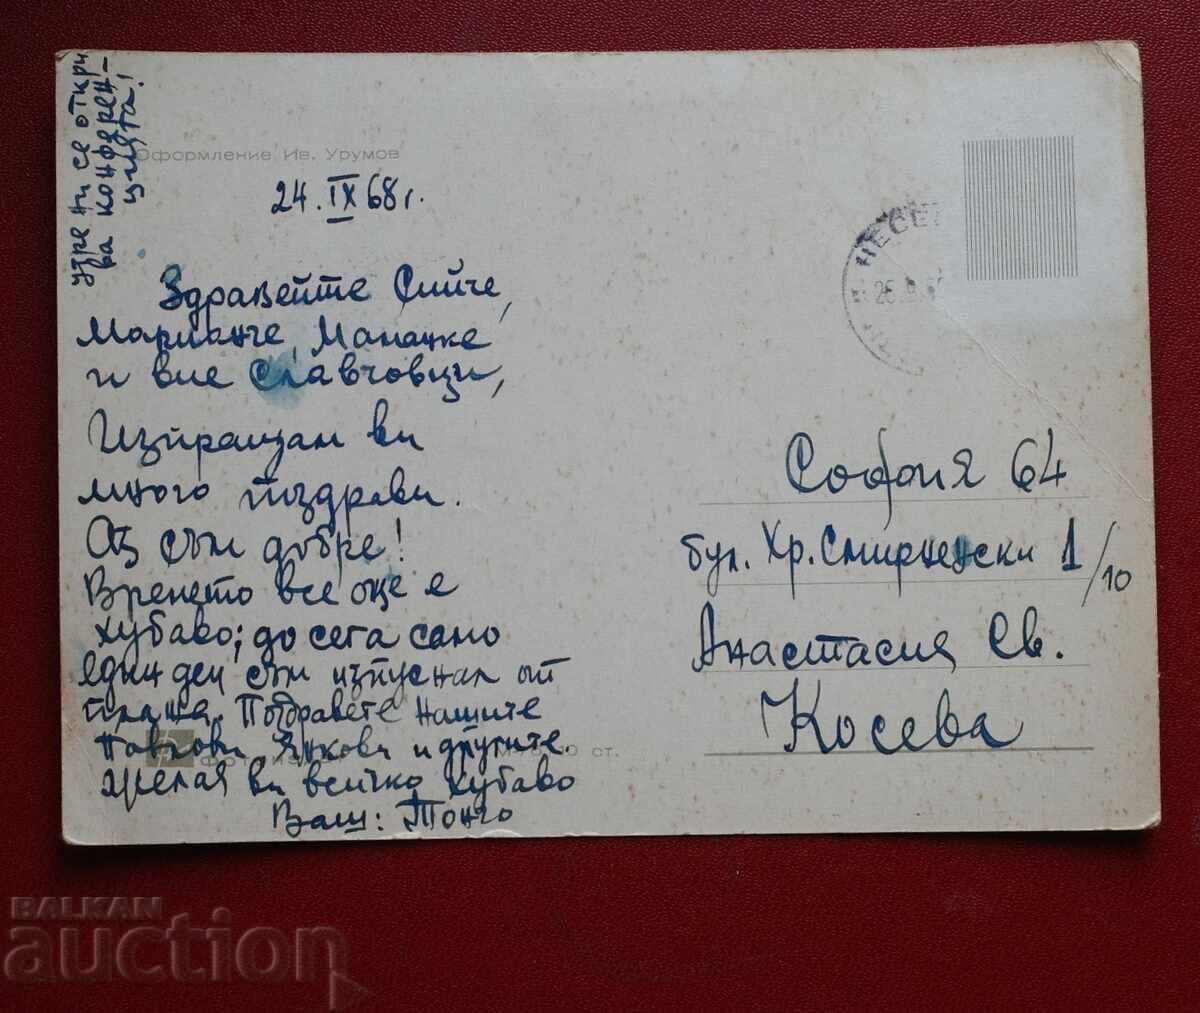 утре ни се откри
ва конферен-
цията!
Оформление Ив. Урумов
24.IX68г.
Здравейте Сийче,
Марианче, Мапачке
и вие Славчовци,
Изпращам ви
много поздрави.
Аз съм добре!
Времето все още е
хубаво; до сега само
един ден съм изпуснал от
плажа. Поздравете нашите
Павкови, Янкови и другите.
Желая ви всичко хубаво
Ваш: Тончо
ст.
НЕСЕ
26
София 64
бул. Хр. Смирненски 1/10
Анастасия Св.
Косева
BALKAN
auction